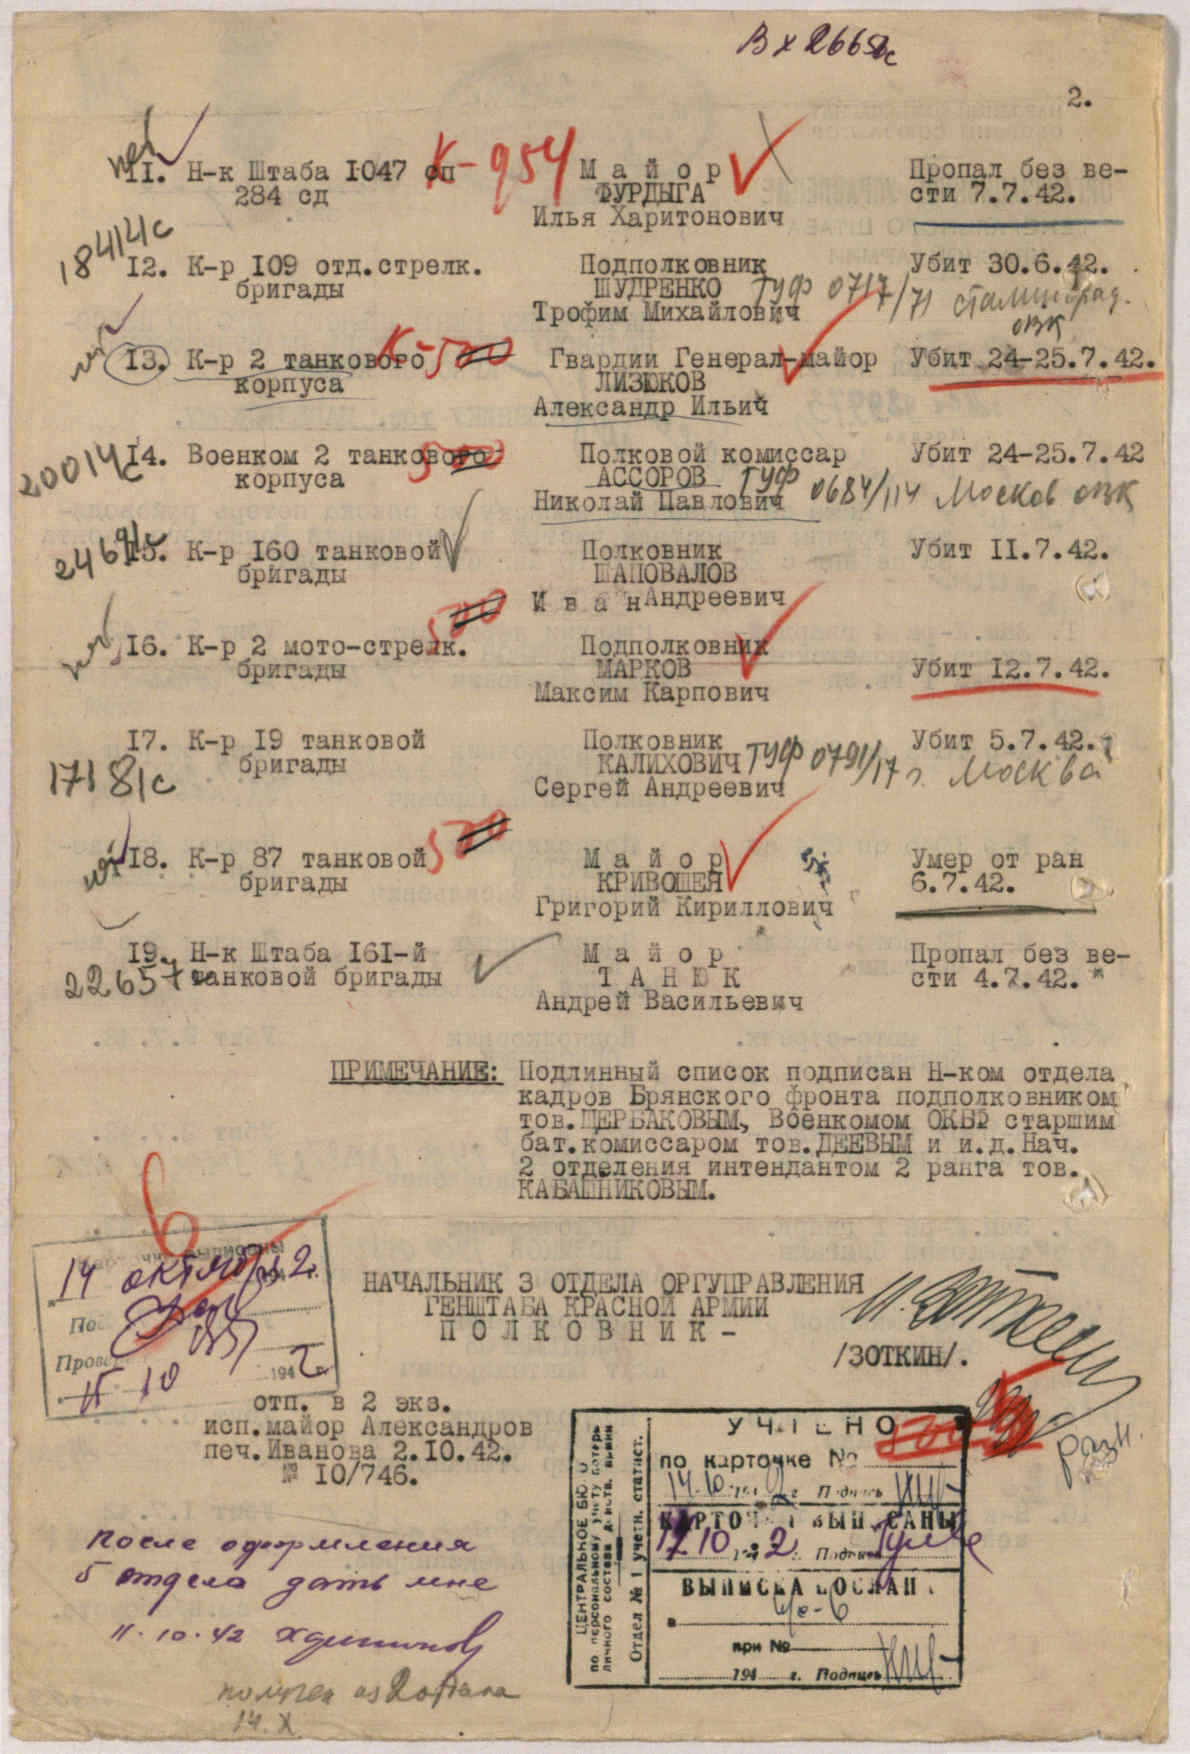 Вх 2665с
2.
нет
11. Н-к Штаба 1047 сп К-954 М а й о р Пропал без ве-
284 сд ФУРДЫГА сти 7.7.42.
Илья Харитонович
18414с
12. К-р 109 отд.стрелк. Подполковник Убит 30.6.42.
бригады ШУДРЕНКО ТУФ 0717/71 Сталинград.
Трофим Михайлович ОВК
нет
13. К-р 2 танкового К-500 Гвардии Генерал-майор Убит 24-25.7.42.
корпуса ЛИЗЮКОВ
Александр Ильич
20014с
14. Военком 2 танкового 500 Полковой комиссар Убит 24-25.7.42
корпуса АССОРОВ ТУФ 0684/114 Москов ОВК
Николай Павлович
24691с
15. К-р 160 танковой Полковник Убит 11.7.42.
бригады ШАПОВАЛОВ
И в а н Андреевич
500
нет
16. К-р 2 мото-стрелк. Подполковник
бригады МАРКОВ Убит 12.7.42.
Максим Карпович
17. К-р 19 танковой Полковник Убит 5.7.42.
бригады КАЛИХОВИЧ ТУФ 0791/17 г. Москва
17181с Сергей Андреевич
500
нет
18. К-р 87 танковой М а й о р Умер от ран
бригады КРИВОШЕЯ 6.7.42.
Григорий Кириллович
19. Н-к Штаба 161-й М а й о р Пропал без ве-
22657с танковой бригады Т А Н Ю К сти 4.7.42.
Андрей Васильевич
ПРИМЕЧАНИЕ: Подлинный список подписан Н-ком отдела
кадров Брянского фронта подполковником
тов.ЩЕРБАКОВЫМ, Военкомом ОКБФ старшим
бат.комиссаром тов.ДЕЕВЫМ и и.д.Нач.
2 отделения интендантом 2 ранга тов.
КАБАШНИКОВЫМ.
6
выписаны
14 октября 2
Прове
15 10 1942 г.
НАЧАЛЬНИК 3 ОТДЕЛА ОРГУПРАВЛЕНИЯ
ГЕНШТАБА КРАСНОЙ АРМИИ
П О Л К О В Н И К – И. Зоткин
/ЗОТКИН/.
отп. в 2 экз.
исп.майор Александров
печ.Иванова 2.10.42.
№ 10/746.
разн.
ЦЕНТРАЛЬНОЕ БЮРО
по персональному учету потерь
личного состава действ. армии
Отдел № 1 учетн. статист.
УЧТЕНО
по карточке № 500
14.10 1942 г. Подпись
КАРТОЧКИ ВЫПИСАНЫ
17 10 1942 г. Подпись
ВЫПИСКА ПОСЛАНА
при №
194 г. Подпись
После оформления
5 отдела дать мне
11.10.42
получен из 2 отдела
14.X